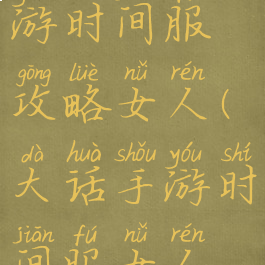 游时间服
gōng lüè nǚ rén
攻略女人(
dà huà shǒu yóu shí
大话手游时
jiān fú nǚ rén
间服女人